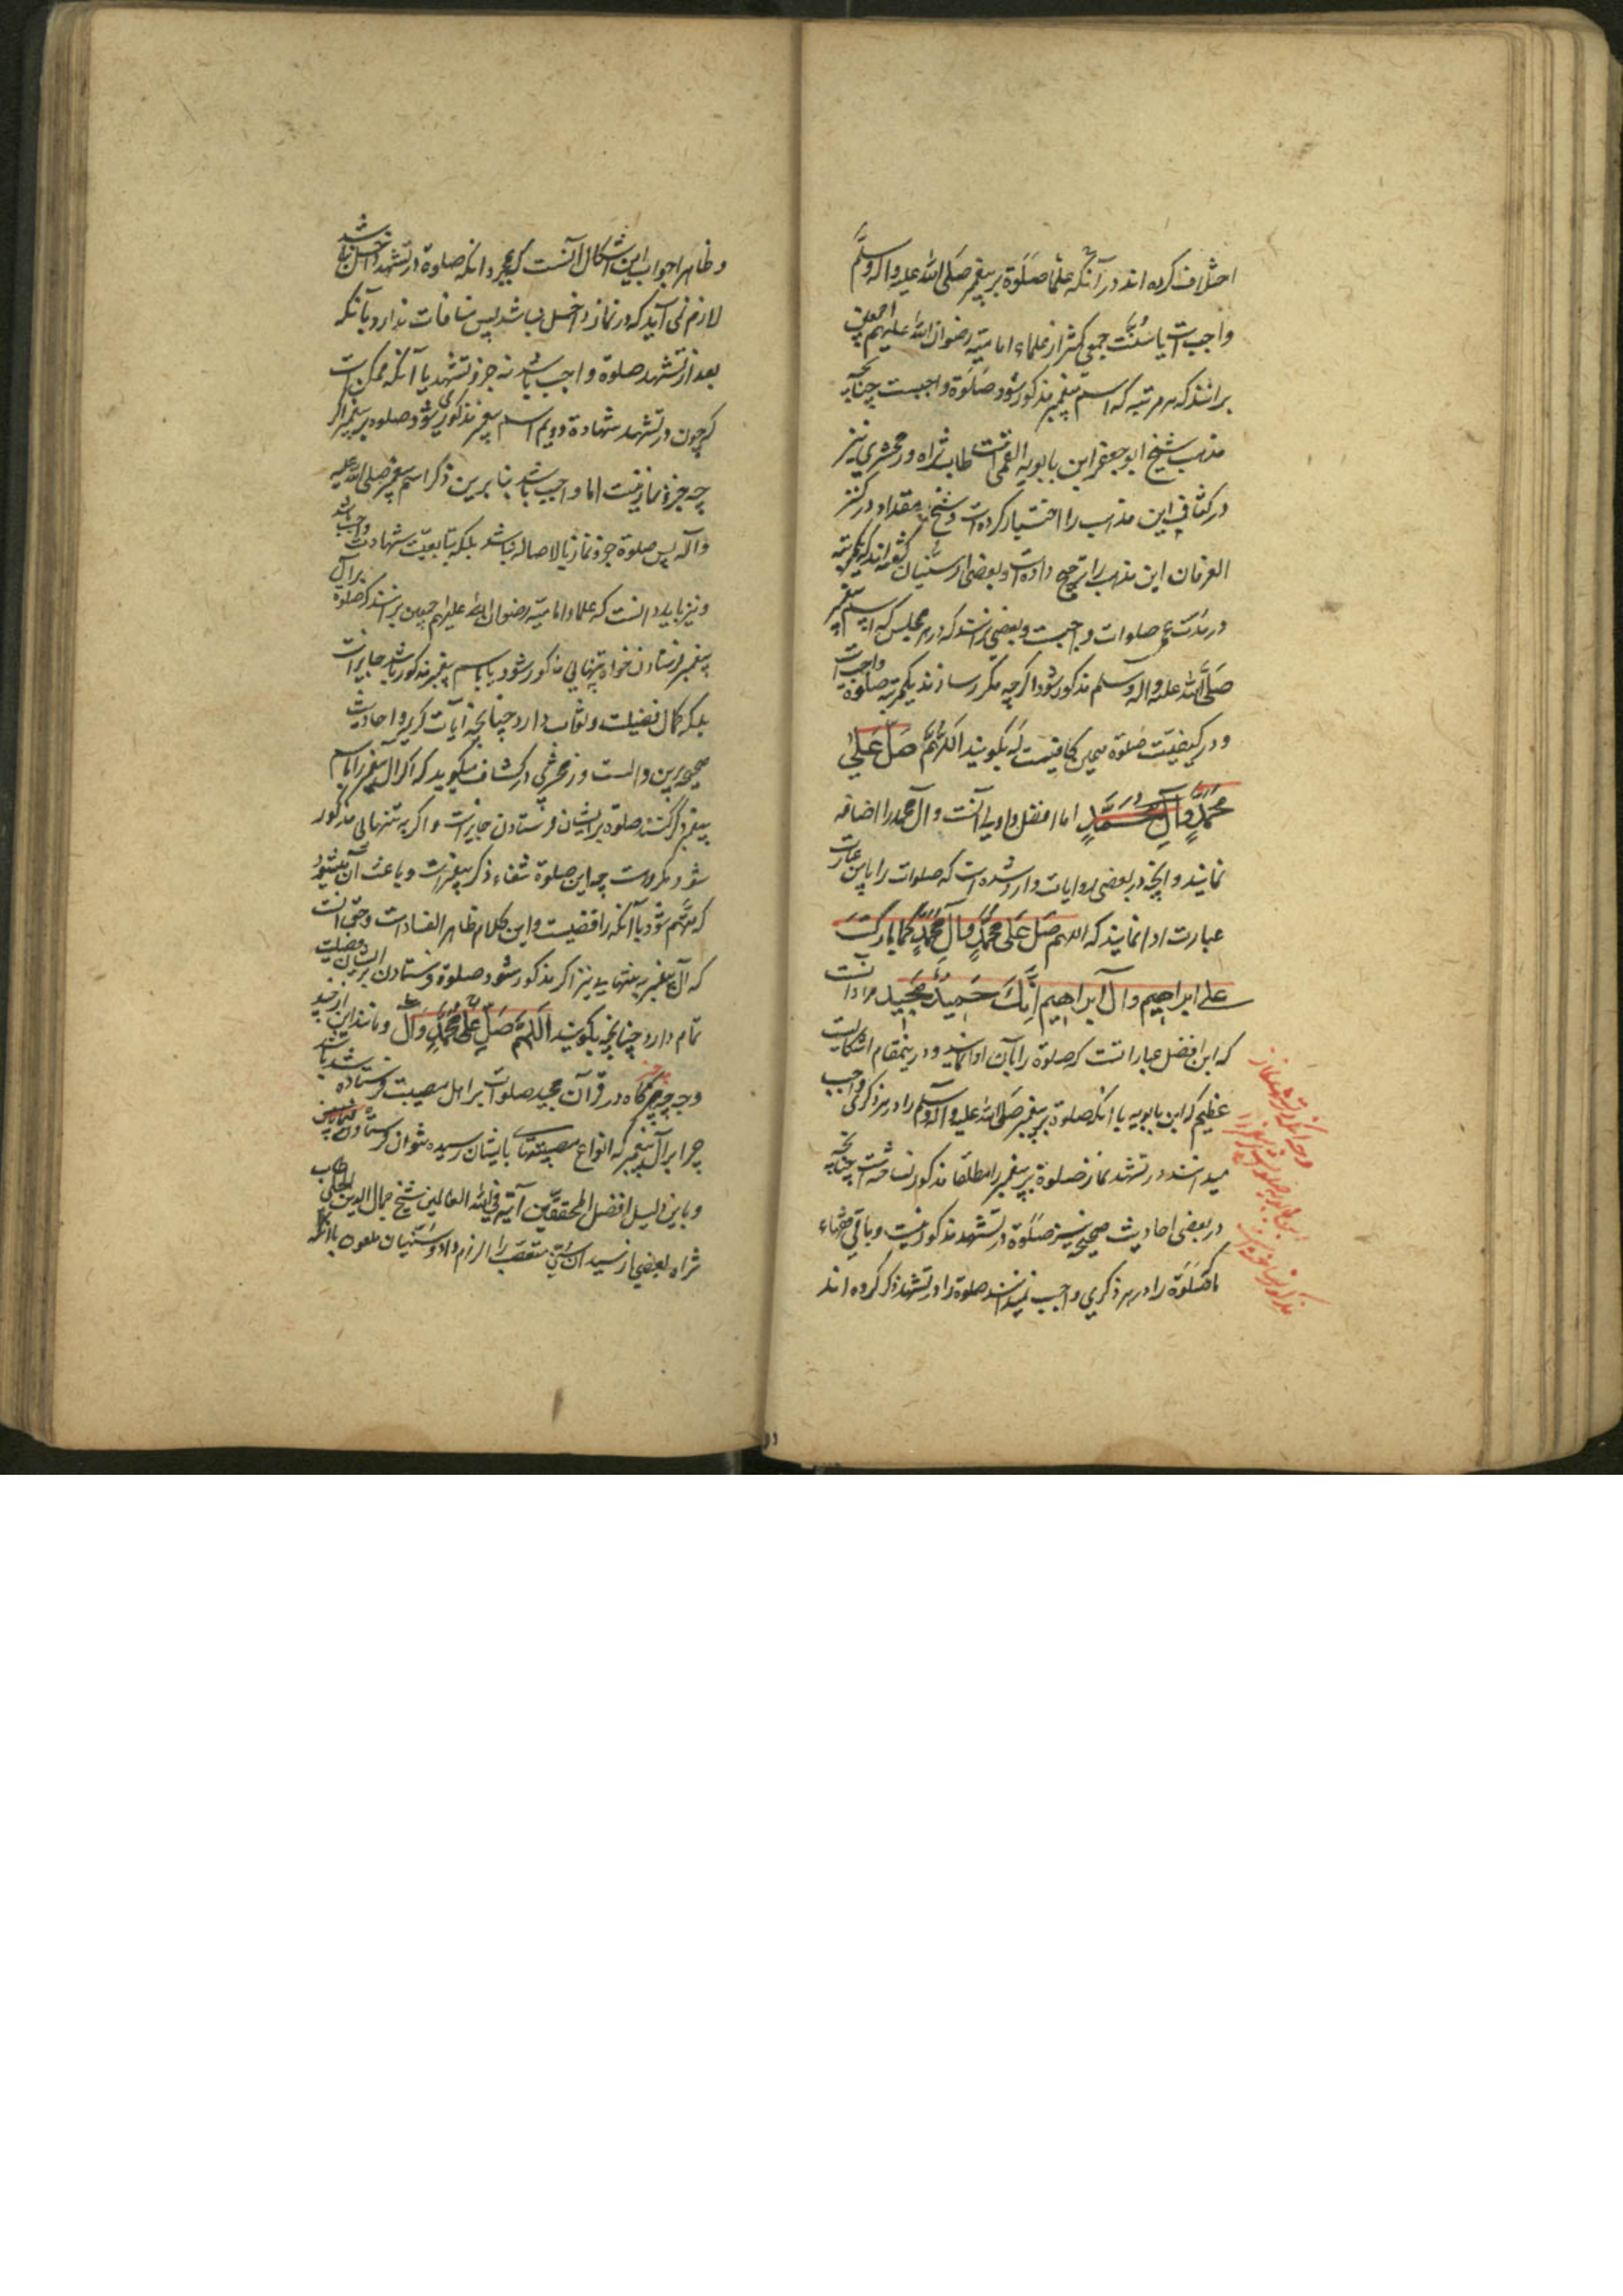 اختلاف کرده اند در آنکه علما صَلَوة بر پیغمبر صَلی الله علیه و اله و سلّم
واجبست یا سُنّت جمعی کثیر از علماء امامیّه رضوان الله علیهم اجمعین
برانند که هر مرتبه که اسم پیغمبر مذکور شود صَلَوة واجبست چنانچه
مذهب شیخ ابو جعفر ابن بابویه القمی است طاب ثراه و زمخشری نیز
در کشاف این مذهب را اختیار کرده است و شیخ مقداد در کنز
العرفان این مذهب را ترجیح داده است و بعضی از سنّیان گفته اند که یکمرتبه
در مدّت عمر صلوات واجبست و بعضی برانند که در هر مجلس که اسم پیغمبر
صَلَّی الله علیه و اله و سلم مذکور شود اگرچه مکرر سازند یکمرتبه صلوة واجبست
و در کیفیّت صَلوة همین کافیست که بگویند اللهُمَّ صَلِّ عَلی
مُحَمَّدٍ وَ آلِ مُحَمَّدٍ اما افضل و اولی آنست و آل محمد را اضافه
نمایند و انچه در بعضی روایات وارد شده است که صلوات را باین عبارت
عبارت ادا نمایند که اللهم صَلِّ عَلی مُحَمَّدٍ وَ آلِ مُحَمَّدٍ کَما بارَکتَ
علی ابراهیم و آل ابراهیم اِنَّکَ حَمیدٌ مَجید مراد آنست
که این افضل عباراتست که صلوة را بآن ادا نمایند و درینمقام اشکالیست
عظیم که ابن بابویه با آنکه صلوة بر پیغمبر صَلی الله علیه و آله و سلم را در هر ذکری واجب
میدانند در تشهد نماز صَلوة بر پیغمبر را مطلقا مذکور نساخته است چنانچه
در بعضی احادیث صحیحه نیز صَلَوة در تشهد مذکور نیست و باقی فقهاء
با آنکه صَلَوة را در هر ذکری واجب نمیدانند صلوة را در تشهد ذکر کرده اند
و ظاهرا جواب این اشکال آنست که بمجرد انکه صلوة در تشهد داخل نباشد
لازم نمی آید که در نماز داخل نباشد پس منافات ندارد با آنکه
بعد از تشهد صلوة واجب باشد نه جزو تشهد یا آنکه ممکن است
که چون در تشهد شهادة دویم اسم پیغمبر مذکور می شود و صلوة بر پیغمبر اگر
چه جزو نماز نیست اما واجب باشد بنا برین ذکر اسم پیغمبر صلی الله علیه
و آله پس صلوة جزو نماز بالاصاله نباشد بلکه بتابعیّت شهادت واجب باشد
و نیز باید دانست که علماء امامیّه رضوان الله علیهم اجمعین برانند که صلوة بر آل
پیغمبر فرستادن خواه بتنهایی مذکور شود یا باسم پیغمبر مذکور باشد جایز است
بلکه کمال فضیلت و ثواب دارد چنانچه آیات کریمه و احادیث
صحیحه برین دالست و زمخشری در کشاف میگوید که اگر آل پیغمبر را با اسم
پیغمبر ذکر کنند صلوة بر ایشان فرستادن جایز است و اگر به تنهایی مذکور
شود مکروهست چه این صلوة شعاء ذکر پیغمبر است و باعث آن میشود
که متّهم شود با آنکه رافضیست و این کلام ظاهر الفساد است و حق آنست
که آل پیغمبر به تنهایی نیز اگر مذکور شود صلوة فرستادن بر ایشان فضیلت
تمام دارد چنانچه بگویند اللَّهُمَّ صَلِّ عَلی مُحَمَّدٍ وَ آل و مانند این
هرگاه در قرآن مجید صلوات بر اهل مصیبت فرستاده شد باشد
چرا بر آل پیغمبر که انواع مصیبتها بایشان رسیده نتوان فرستادن
و باین دلیل افضل المحققین آیة فی الله العالمین شیخ جمال الدین الحلی طاب
ثراه بعضی از سیدان سنّی متعصّب را الزام داد و سنّیان ملعون با آنکه